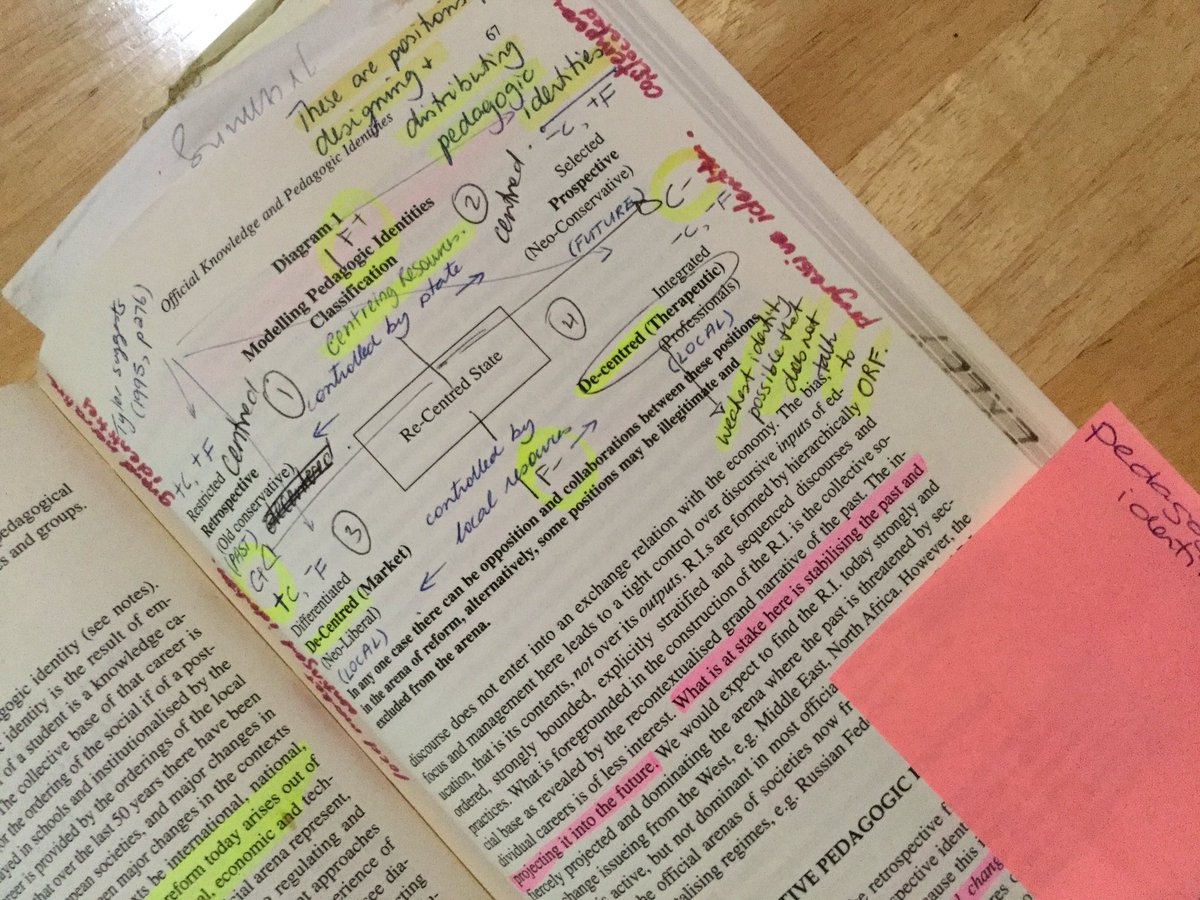 These are positions
designing +
distributing
pedagogic
identities
67
Official Knowledge and Pedagogic Identities
-c, +F
Diagram 1
F+
Modelling Pedagogic Identities
Classification
centreing Resources.
controlled by state
1
2
centred.
Centred
+c, +F
Restricted
Retrospective
(Old conservative)
(PAST)
Selected
Prospective
(Neo-Conservative)
(FUTURE)
C-
Re-Centred State
3
4
+c, -F
Differentiated
De-Centred (Market)
(Neo-Liberal)
(LOCAL)
controlled by
local resources
F-
-c, -F
Integrated
De-centred (Therapeutic)
(Professionals)
(LOCAL)
weakest identity
possible that
does not
talk
to
ORF.
progressive identity.
Tyler suggests
(1995, p.
In any one case there can be opposition and collaborations between these positions
in the arena of reform, alternatively, some positions may be illegitimate and
excluded from the arena.
discourse does not enter into an exchange relation with the economy. The bias,
focus and management here leads to a tight control over discursive inputs of ed-
ucation, that is its contents, not over its outputs. R.I.s are formed by hierarchically
ordered, strongly bounded, explicitly stratified and sequenced discourses and
practices. What is foregrounded in the construction of the R.I. is the collective so-
cial base as revealed by the recontextualised grand narrative of the past. The in-
dividual careers is of less interest. What is at stake here is stabilising the past and
projecting it into the future. We would expect to find the R.I. today strongly and
fiercely projected and dominating the arena where the past is threatened by sec-
change issuing from the West, e.g. Middle East, North Africa. However, the
is active, but not dominant in most official
the official arenas of societies now
italising regimes, e.g. Russian Fed
TIVE PEDAGOGIC
the retrospective
chang
edagogical
s and groups.
gogic identity (see notes).
identity is the result of em-
of a student is a knowledge ca-
the collective base of that career is
the ordering of the social if of a post-
ayed in schools and institutionalised by the
eer is provided by the orderings of the local
that over the last 50 years there have been
pean societies, and major changes in
een major changes in the contexts
xts be international, national,
reform today arises out of
al, economic and tech-
cial arena represent,
regulating and
nt approaches
perience of
see dia-
cting